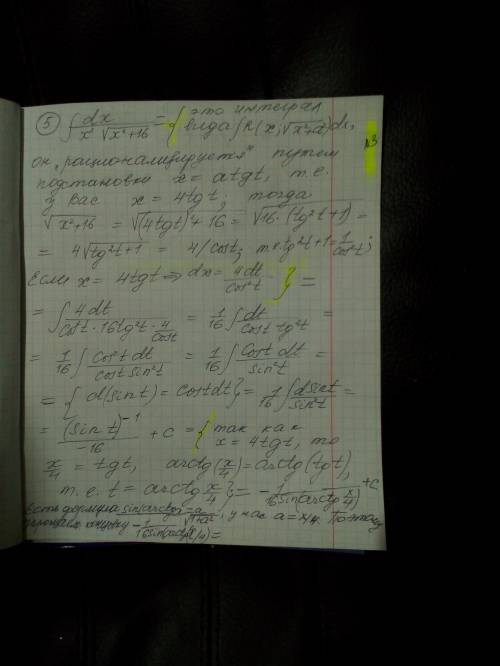 ⑤ ∫ dx / (x² √(x²+16)) = { это интеграл
вида ∫R(x; √(x²+a²))dx,
он „рационализируется" путем
подстановки x = a tg t, т.е.
у вас x = 4tgt, тогда
√(x²+16) = √((4tgt)²+16) = √(16·(tg²t+1)) =
= 4√(tg²t+1) = 4/cost; т.к tg²t+1 = 1/cos²t;
Если x = 4tgt ⇒ dx = 4dt/cos²t } =
= ∫ 4dt / (cos²t · 16tg²t · 4/cost) = 1/16 ∫ dt / (cost tg²t) =
= 1/16 ∫ cos²t dt / (cost sin²t) = 1/16 ∫ cost dt / sin²t =
= { d(sint) = costdt } = 1/16 ∫ dsint / sin²t =
= (sint)⁻¹ / -16 + c = { так как
x = 4tgt, то
x/4 = tgt, arctg(x/4) = arctg(tgt),
т.е. t = arctg x/4 } = - 1 / (16sin(arctg x/4)) + c
Есть формула sin(arctga) = a/√(1+a²), у нас a = x/4. Поэтому
-1/(16sin(arctg(x/4)) =
№3